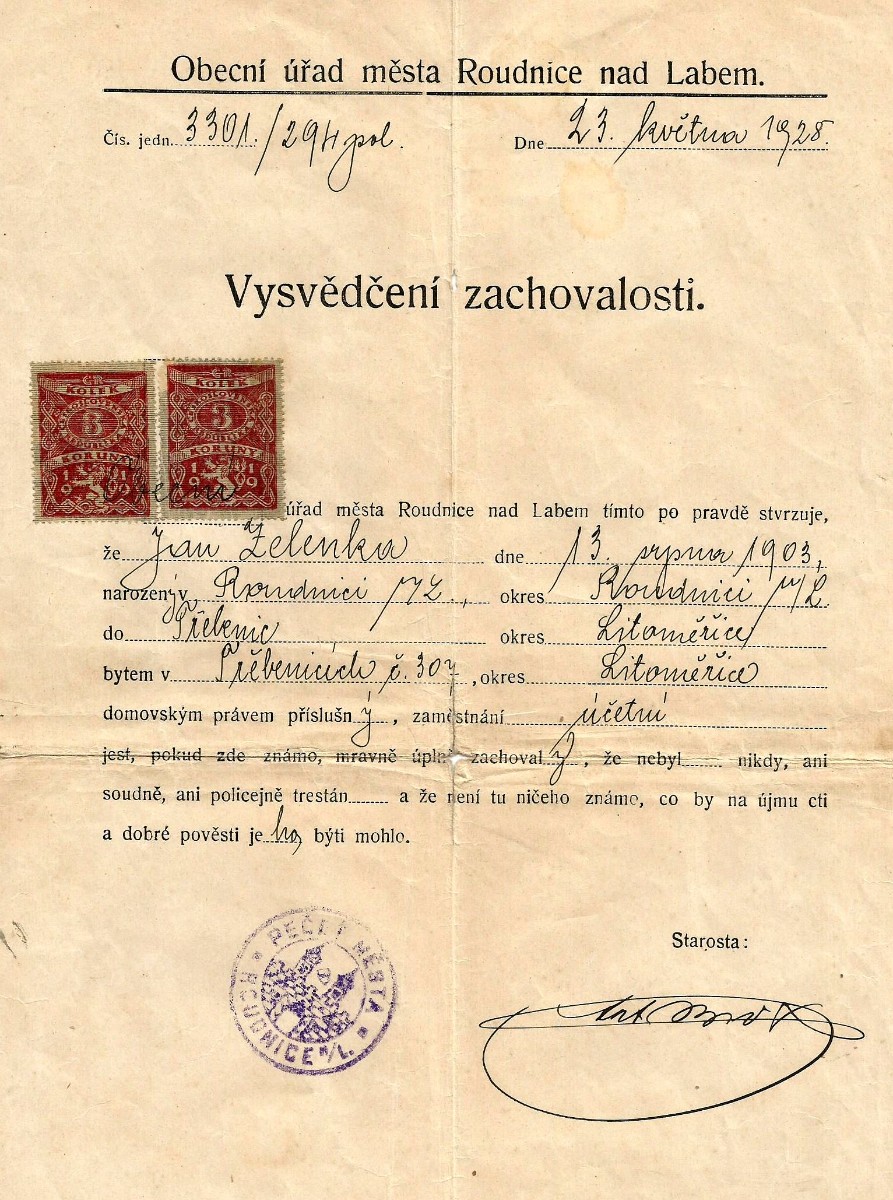 Obecní úřad města Roudnice nad Labem.
Čís. jedn. 3301./294 pol. Dne 23. května 1928.
Vysvědčení zachovalosti.
ČR KOLEK 3 KORUNY 1919
ČR KOLEK 3 KORUNY 1919
Obecní úřad města Roudnice nad Labem tímto po pravdě stvrzuje,
že Jan Zelenka dne 13. srpna 1903,
narozený v Roudnici n/L., okres Roudnici n/L.
do Třebenic okres Litoměřice
bytem v Třebenicích č. 307, okres Litoměřice
domovským právem příslušný, zaměstnání účetní
jest, pokud zde známo, mravně úplně zachovalý, že nebyl nikdy, ani
soudně, ani policejně trestán a že není tu ničeho známo, co by na újmu cti
a dobré pověsti jeho býti mohlo.
PEČEŤ MĚSTA ROUDNICE N/L.
Starosta: